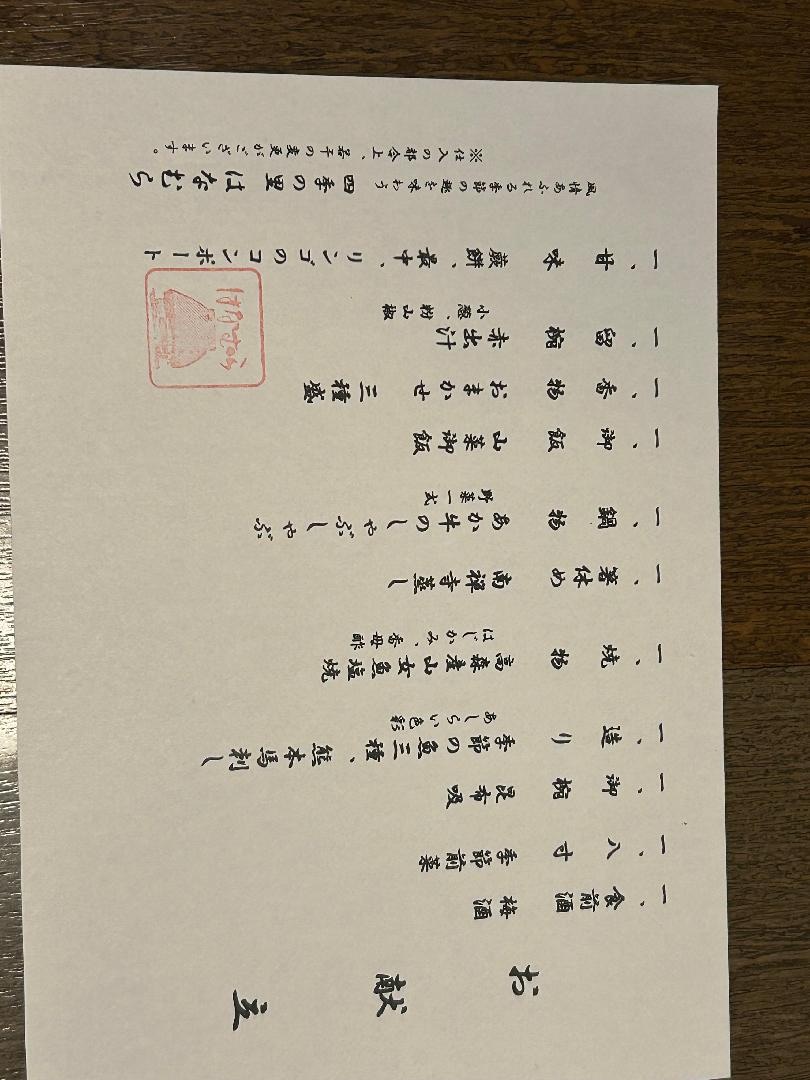 お献立
一、食前酒 梅酒
一、八寸 季節前菜
一、御椀 昆布吸
一、造り 季節の魚三種、熊本馬刺し
あしらい色彩
一、焼物 高森産山女魚塩焼
はじかみ、香母酢
一、箸休め 南禅寺蒸し
一、鍋物 あか牛のしゃぶしゃぶ
野菜一式
一、御飯 山菜御飯
一、香物 おまかせ 三種盛
一、留椀 赤出汁
小葱、粉山椒
一、甘味 蕨餅、最中、リンゴのコンポート
風情あふれる季節の趣を味わう 四季の里 はなむら
※仕入の都合上、若干の変更がございます。
はなむら